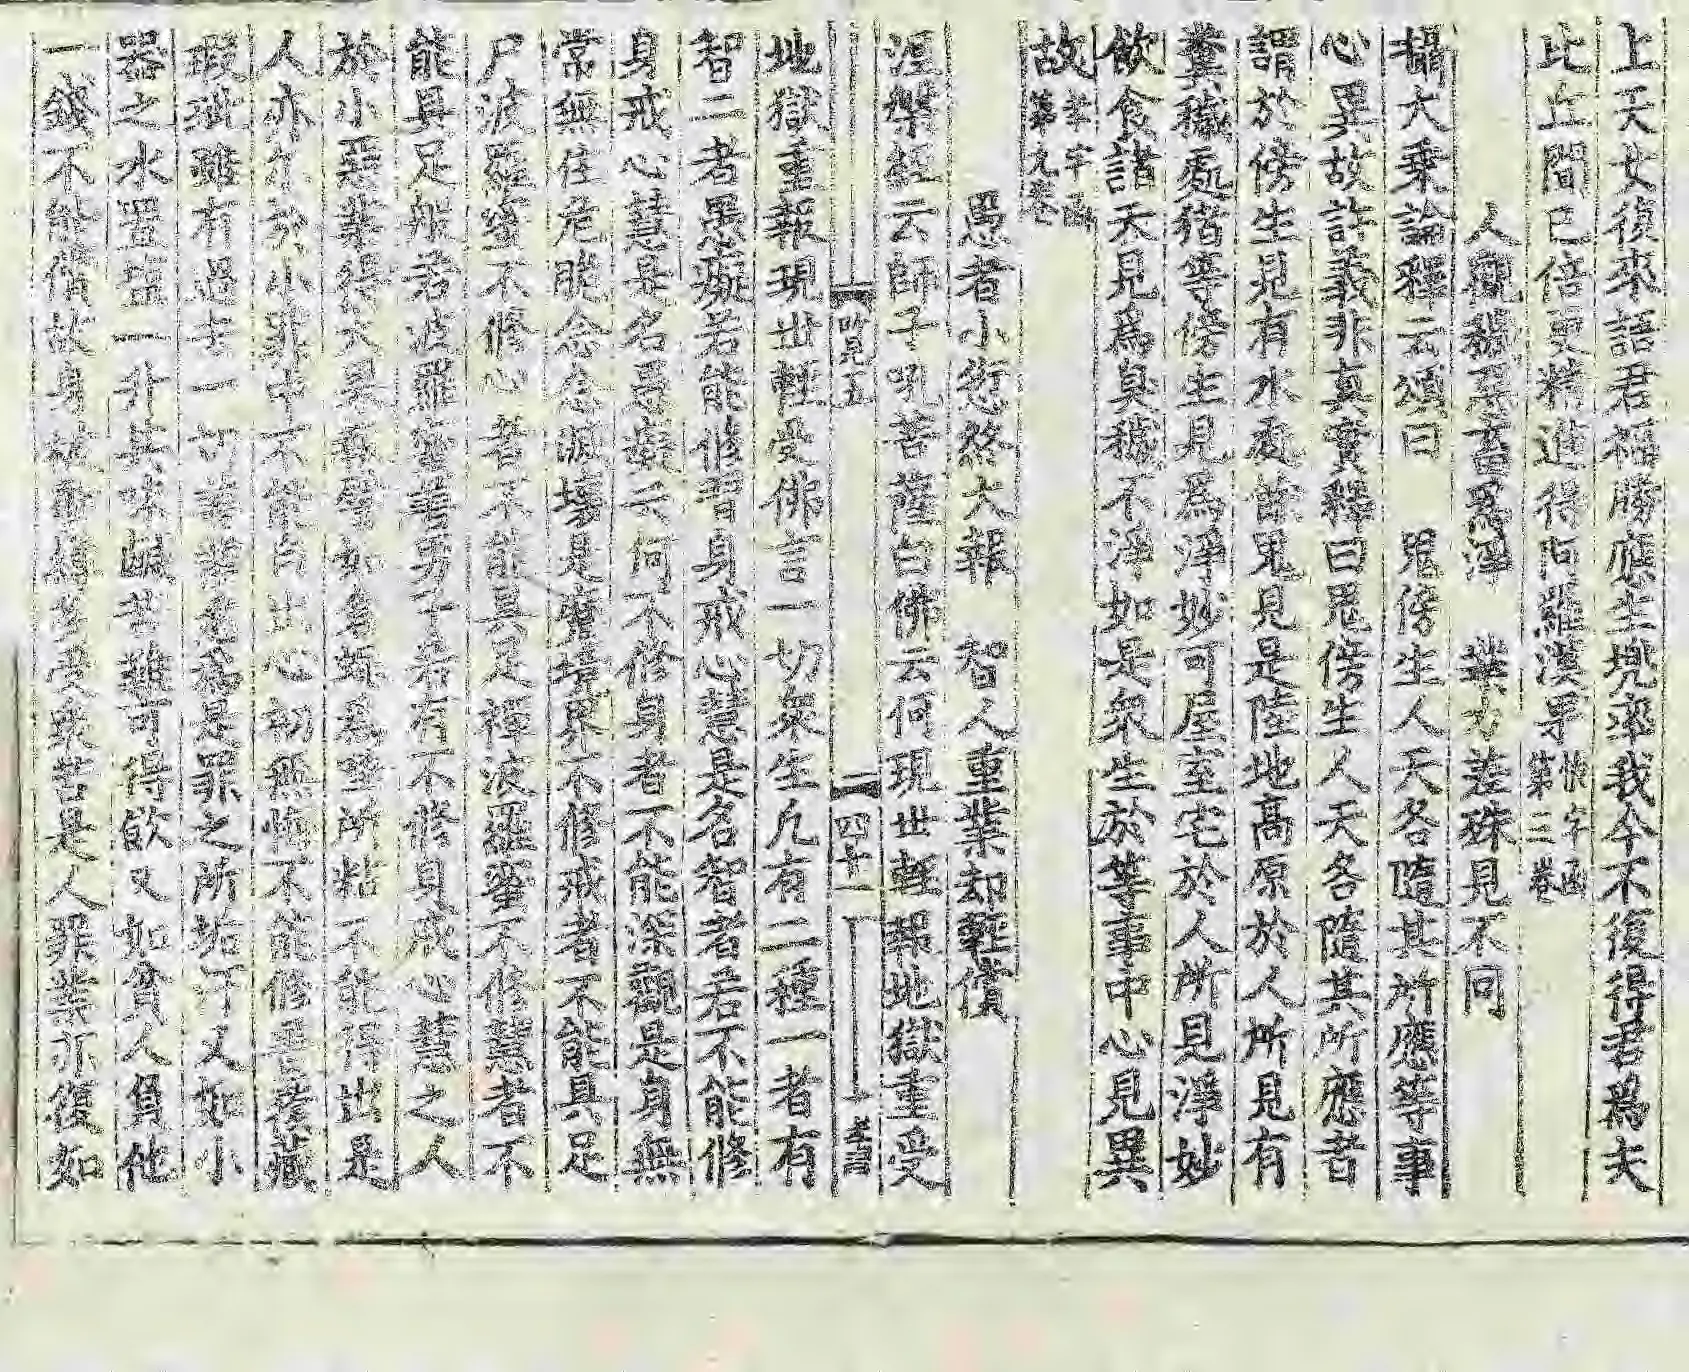 上天女復來語君福勝應生兜率我今不復得君爲夫
比丘聞已倍更精進得阿羅漢果 第三卷
人觀穢惡畜爲淨 業力差殊見不同
攝大乘論釋云頌曰 鬼傍生人天各隨其所應等事
心異故許義非真實釋曰鬼傍生人天各隨其所應者
謂於傍生見有水處餓鬼見是陸地高原於人所見有
糞穢處猪等傍生見爲淨妙可屋室宅於人所見淨妙
飲食諸天見爲臭穢不淨如是衆生於等事中心見異
故 孝字函第九卷
愚者小愆終大報 智人重業却輕償
涅槃經云師子吼菩薩白佛云何現世輕報地獄重受
四十一
地獄重報現世輕受佛言一切衆生凡有二種一者有
智二者愚癡若能修習身戒心慧是名智者若不能修
身戒心慧是名愚癡云何不修身者不能深觀是身無
常無住危脆念念滅壞是魔境界不修戒者不能具足
尸波羅蜜不修心者不能具足禪波羅蜜不修慧者不
能具足般若波羅蜜善男子若有不修身戒心慧之人
於小惡業得大惡報譬如蒼蠅爲唾所粘不能得出是
人亦尒於小罪中不能自出心初無悔不能修善覆藏
瑕玼雖有過去一切善業悉爲是罪之所垢汙又如小
器之水置塩一升其味鹹苦難可得飲又如貧人負他
一錢不能償故身被繫縛多受衆苦是人罪業亦復如